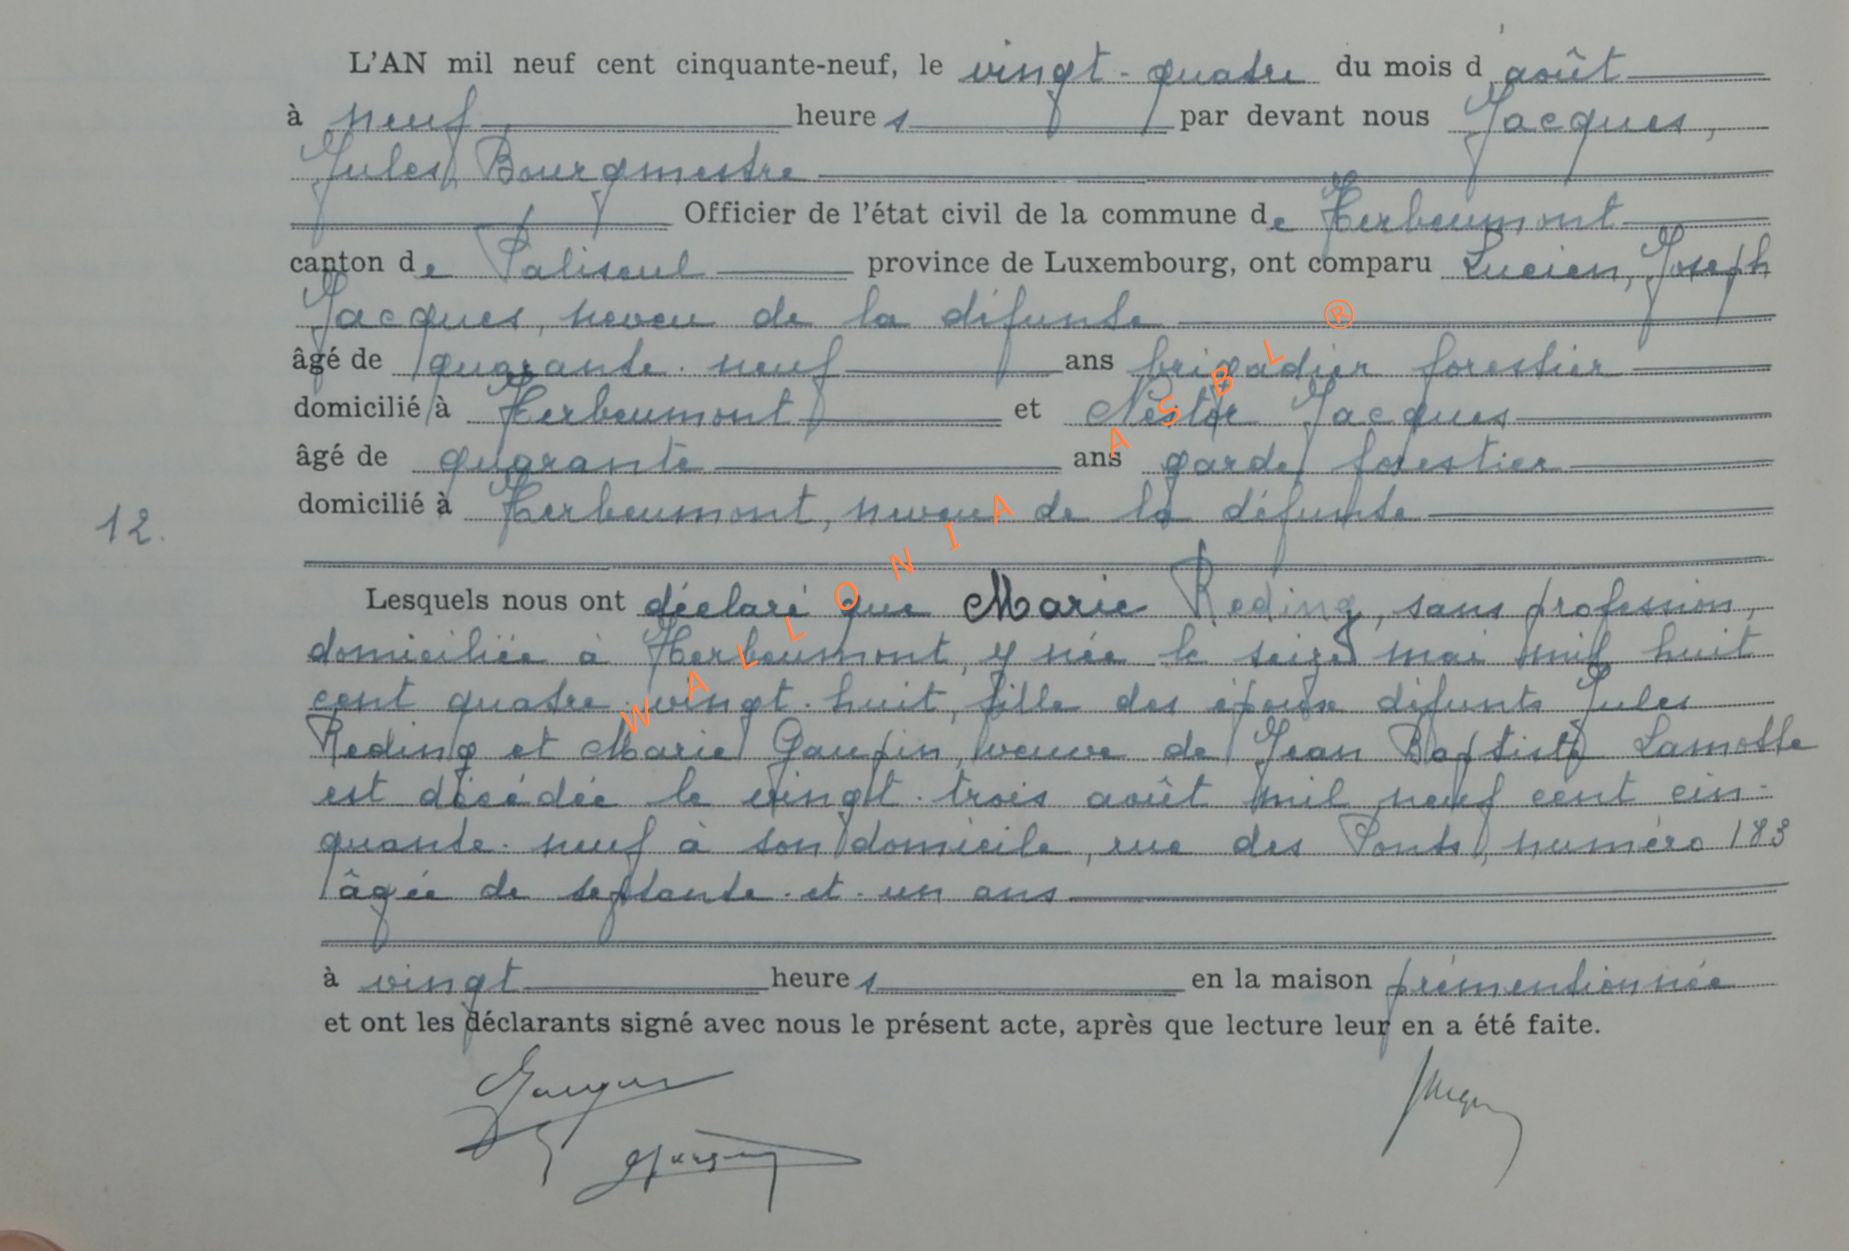 L'AN mil neuf cent cinquante-neuf, le vingt-quatre du mois d'août
à neuf heures par devant nous Jacques,
Jules, Bourgmestre
Officier de l'état civil de la commune de Herbeumont
canton de Paliseul province de Luxembourg, ont comparu Lucien, Joseph
Jacques, neveu de la défunte
âgé de quarante-neuf ans brigadier forestier
domicilié à Herbeumont et Nestor Jacques
âgé de quarante ans garde forestier
domicilié à Herbeumont, neveu de la défunte
12.
Lesquels nous ont déclaré que Marie Reding, sans profession,
domiciliée à Herbeumont, y née le seize mai mil huit
cent quatre-vingt-huit, fille des époux défunts Jules
Reding et Marie Gaupin, veuve de Jean Baptiste Lamotte
est décédée le vingt-trois août mil neuf cent cin-
quante-neuf à son domicile, rue des Ponts, numéro 183
âgée de septante-et-un ans
à vingt heures en la maison prémentionnée
et ont les déclarants signé avec nous le présent acte, après que lecture leur en a été faite.
WALLONIA ASBL ®